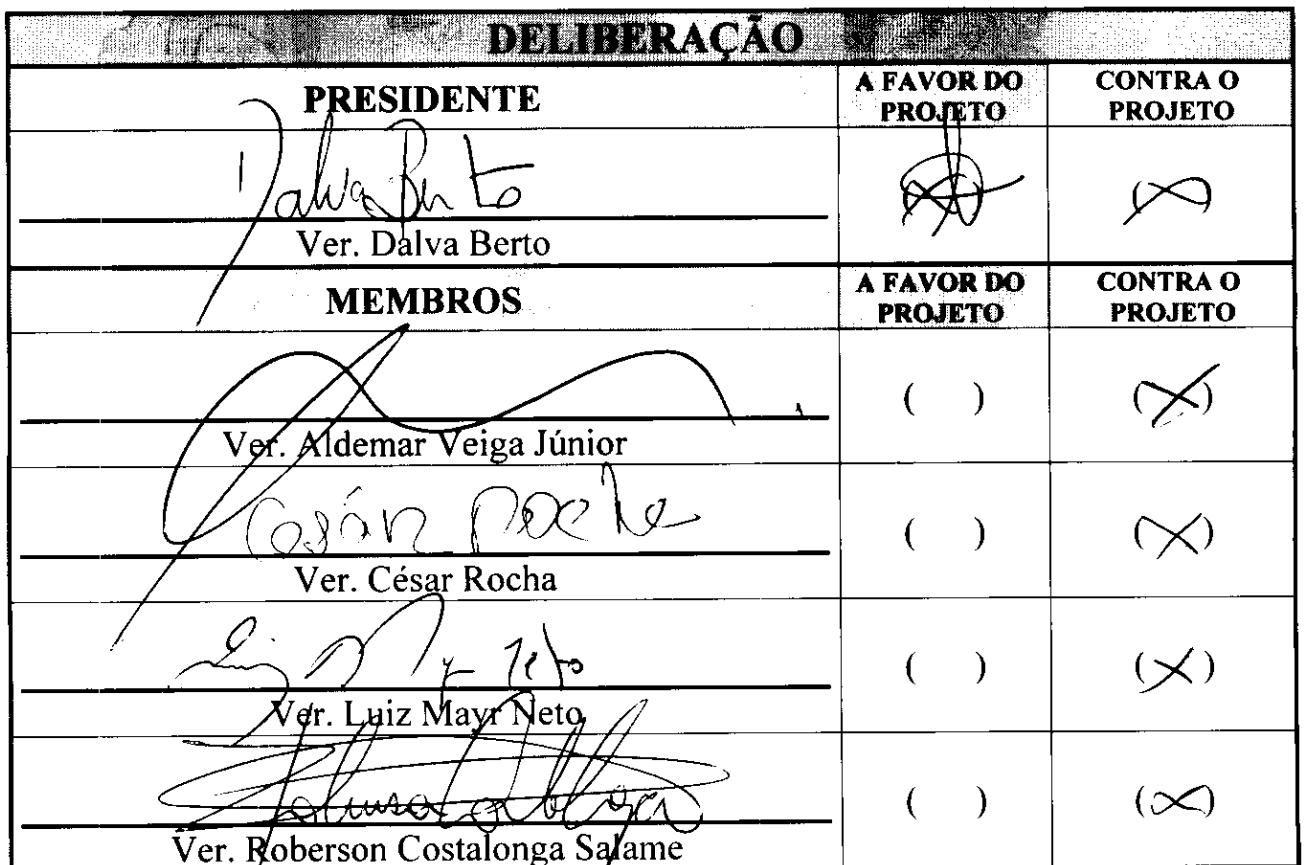 DELIBERAÇÃO
PRESIDENTE
A FAVOR DO PROJETO
CONTRA O PROJETO
Dalva Berto
(X)
(X)
Ver. Dalva Berto
MEMBROS
A FAVOR DO PROJETO
CONTRA O PROJETO
( )
(X)
Ver. Aldemar Veiga Júnior
César Rocha
( )
(X)
Ver. César Rocha
Luiz Mayr Neto
( )
(X)
Ver. Luiz Mayr Neto
( )
(X)
Ver. Roberson Costalonga Salame